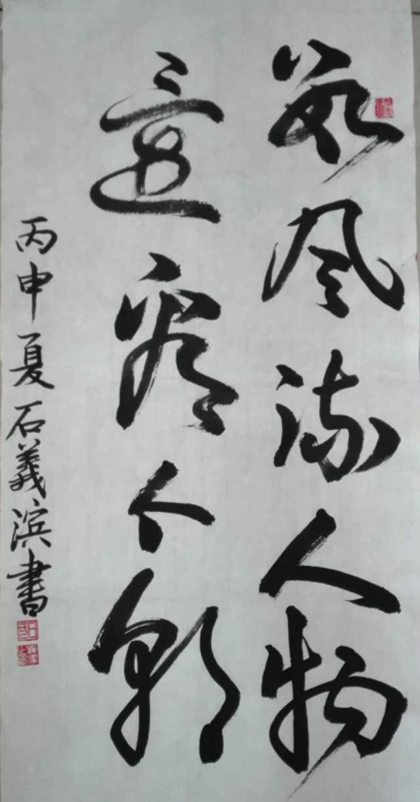 数风流人物
还看今朝
丙申夏石義滨書